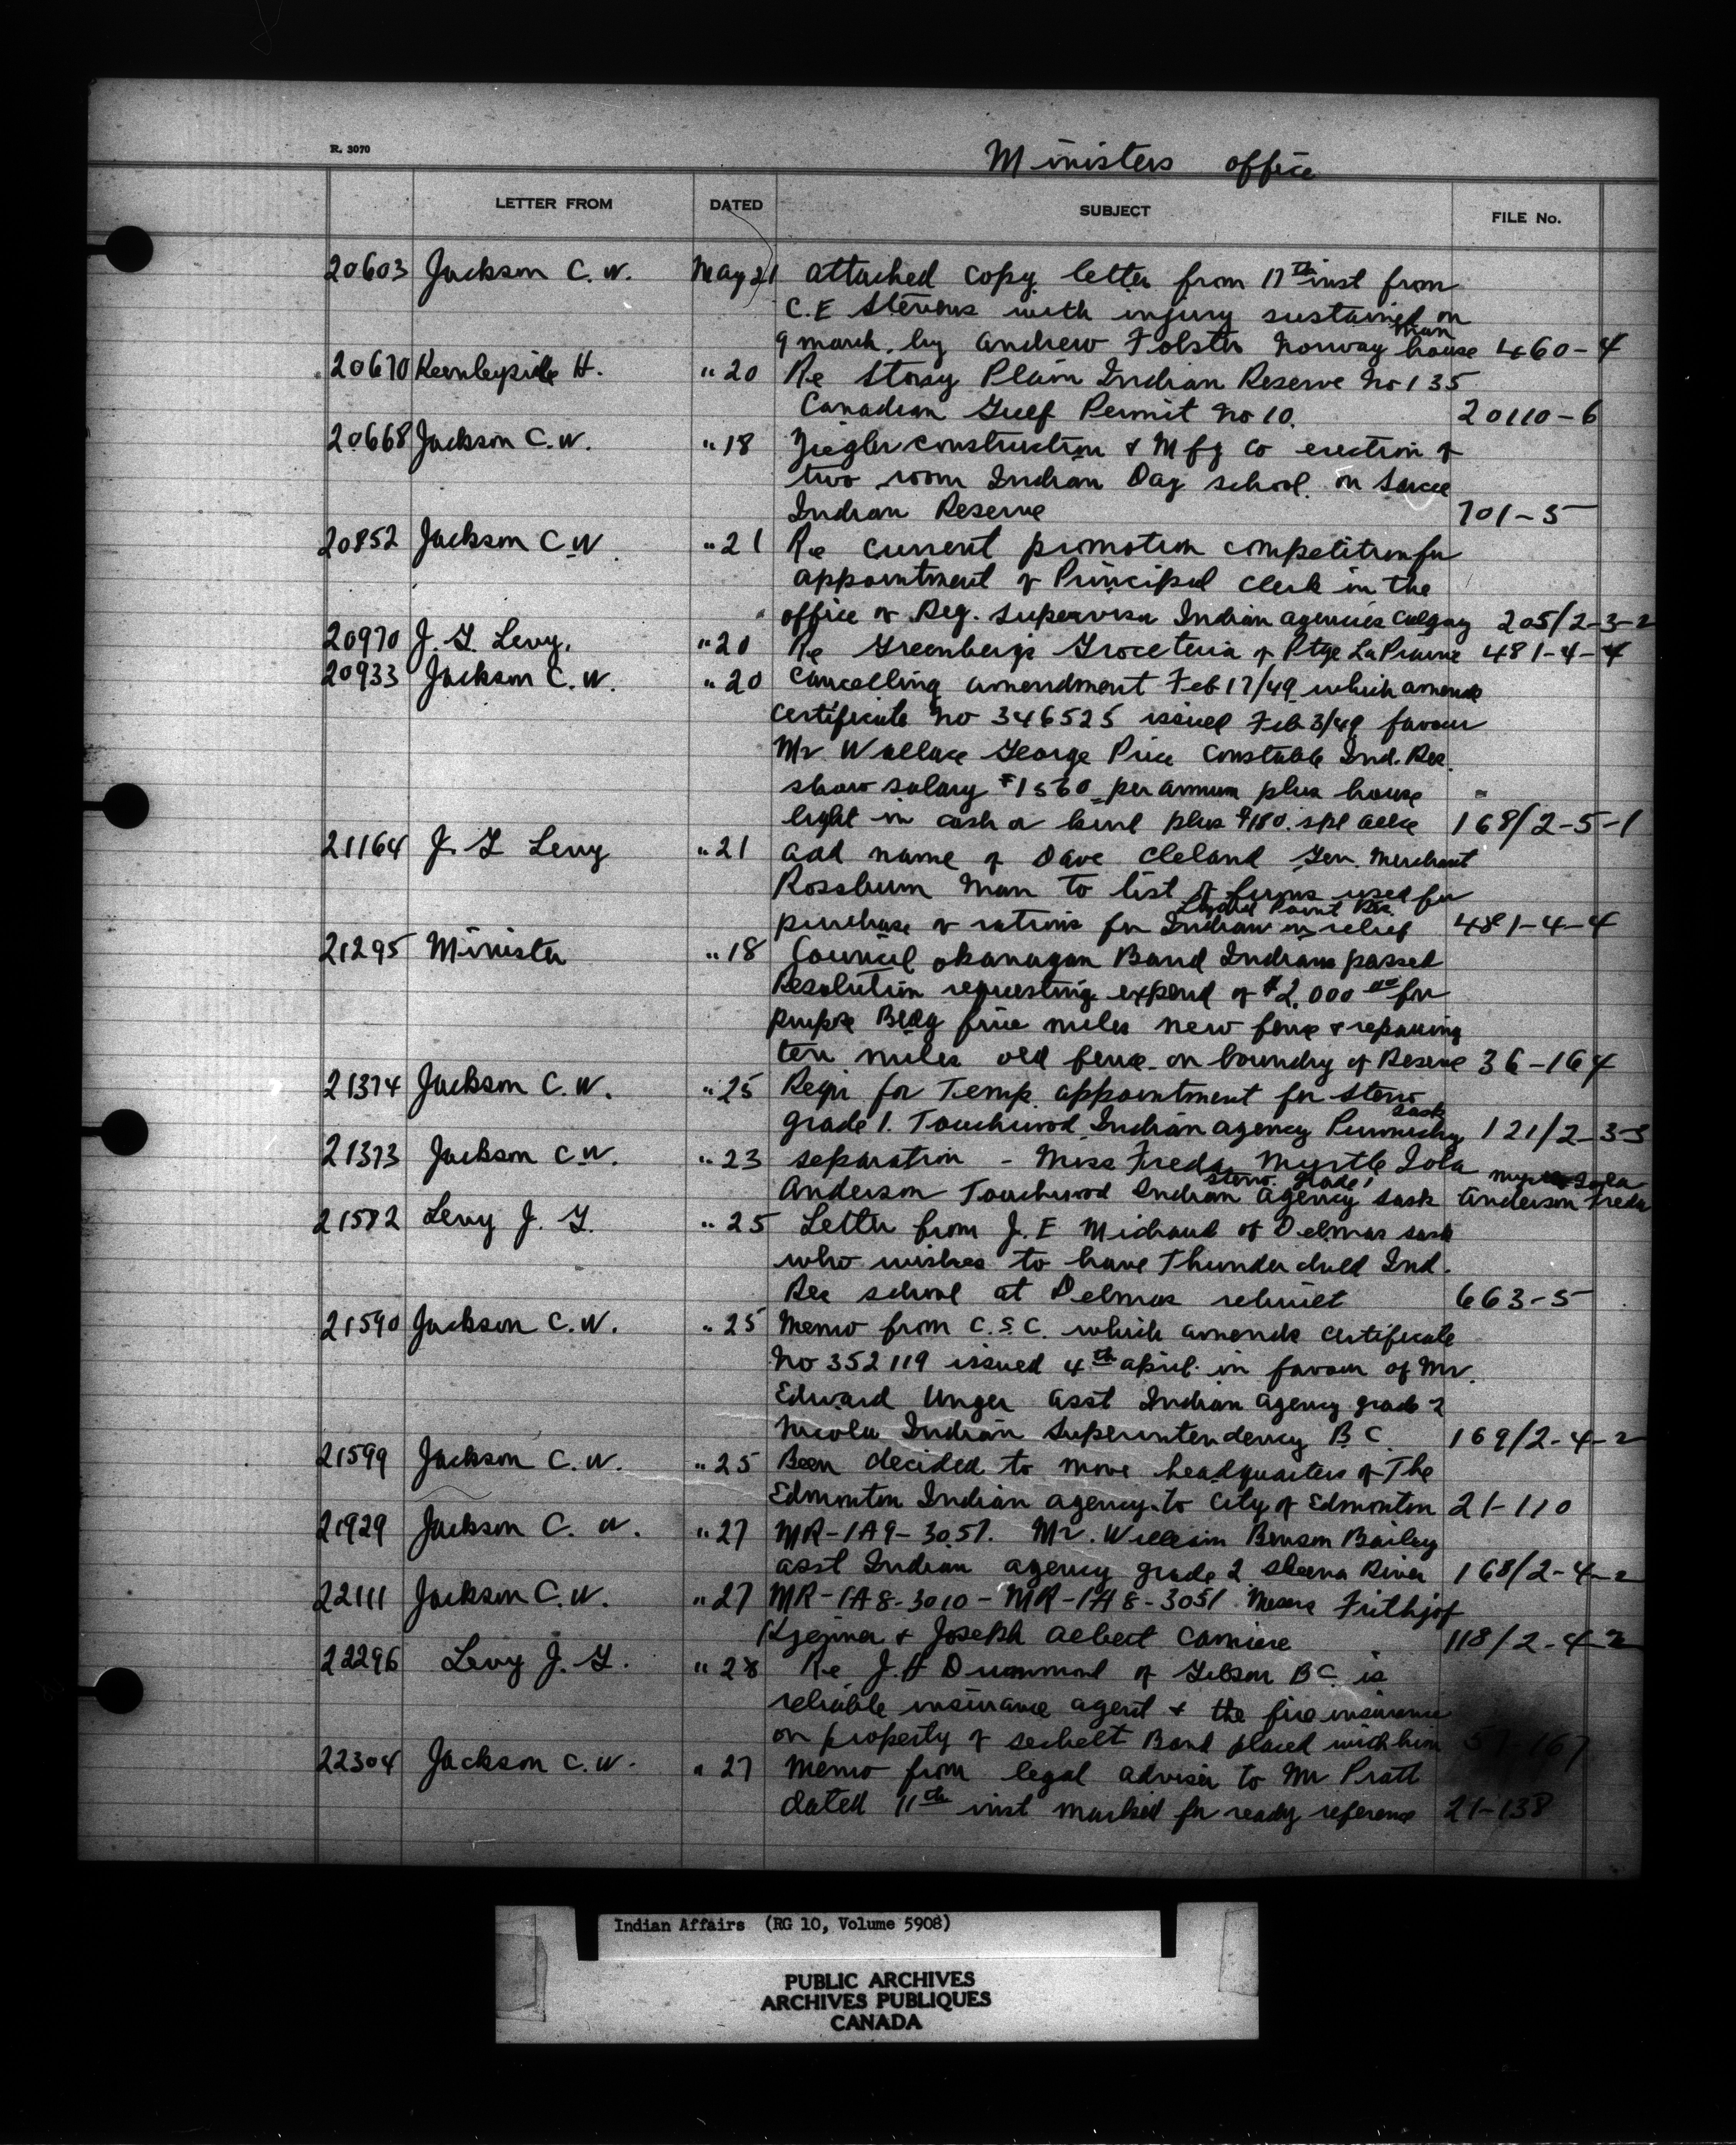 R. 3070
Ministers office
LETTER FROM DATED SUBJECT FILE No.
20603 Jackson C. W. May 21 attached copy letter from 17th inst from
C. E Stevens with injury sustained on
9 march. by Andrew Folster Norway house Man 460-4
20670 Keenleyside H. " 20 Re Stony Plain Indian Reserve No 135
Canadian Gulf Permit No 10. 20110-6
20668 Jackson C. W. " 18 Ziegler construction & Mfg Co erection of
two room Indian Day school on Sarcee
Indian Reserve 701-5
20852 Jackson C W " 21 Re current promotion competition for
appointment of Principal Clerk in the
office of Reg. Supervisor Indian agencies Calgary 205/2-3-2
20970 J. G. Levy. " 20 Re Greenbergs Groceteria of Ptge La Prairie 481-4-4
20933 Jackson C. W. " 20 Cancelling amendment Feb 17/49 which amends
certificate No 346525 issued Feb 3/49 favour
Mr Wallace George Price Constable Ind. Res.
show salary $1560 per annum plus house
light in cash or kind plus $180. spl allce 168/2-5-1
21164 J. G Levy " 21 add name of Dave Cleland Gen. Merchant
Rossburn Man to list of firms used for
purchase of rations for Indians on relief 481-4-4
Point Res.
21295 Minister " 18 Council Okanagan Band Indians passed
Resolution requesting expend of $2,000 00 for
purpose Bldg five miles new fence & repairing
ten miles old fence on boundry of Reserve 36-164
21374 Jackson C. W. " 25 Reqn for Temp. appointment for Steno
grade 1. Touchwood Indian agency Punnichy Sask 121/2-3-3
21373 Jackson C. W. " 23 separation - Miss Freda Myrtle Iola
Anderson Touchwood Indian Agency Sask steno. grade 1 Anderson Freda Myrtle Iola
21582 Levy J. G. " 25 Letter from J. E Michaud of Delmas Sask
who wishes to have Thunderchild Ind.
Res school at Delmas rebuilt 663-5
21590 Jackson C. W. " 25 Memo from C. S. C. which amends certificate
No 352119 issued 4th april. in favour of Mr.
Edward Unger asst Indian Agency grade 2
Nicola Indian Superintendency B. C. 169/2-4-2
21599 Jackson C. W. " 25 Been decided to move headquarters of The
Edmonton Indian agency to City of Edmonton 21-110
21929 Jackson C. W. " 27 MR-1A9-3057. Mr. William Benson Bailey
asst Indian agency grade 2 Skeena River 168/2-4-2
22111 Jackson C. W. " 27 MR-1A8-3010 - MR-1A8-3051 Messrs Frithjof
& Joseph Albert Camiere 118/2-4-2
22296 Levy J. G. " 28 Re J. H Drummond of Gibson B C. is
reliable insurance agent & the fire insurance
on property of Sechelt Band placed with him 57-167
22304 Jackson C. W. " 27 Memo from legal adviser to Mr Pratt
dated 11th inst marked for ready reference 21-138
Indian Affairs (RG 10, Volume 5908)
PUBLIC ARCHIVES
ARCHIVES PUBLIQUES
CANADA